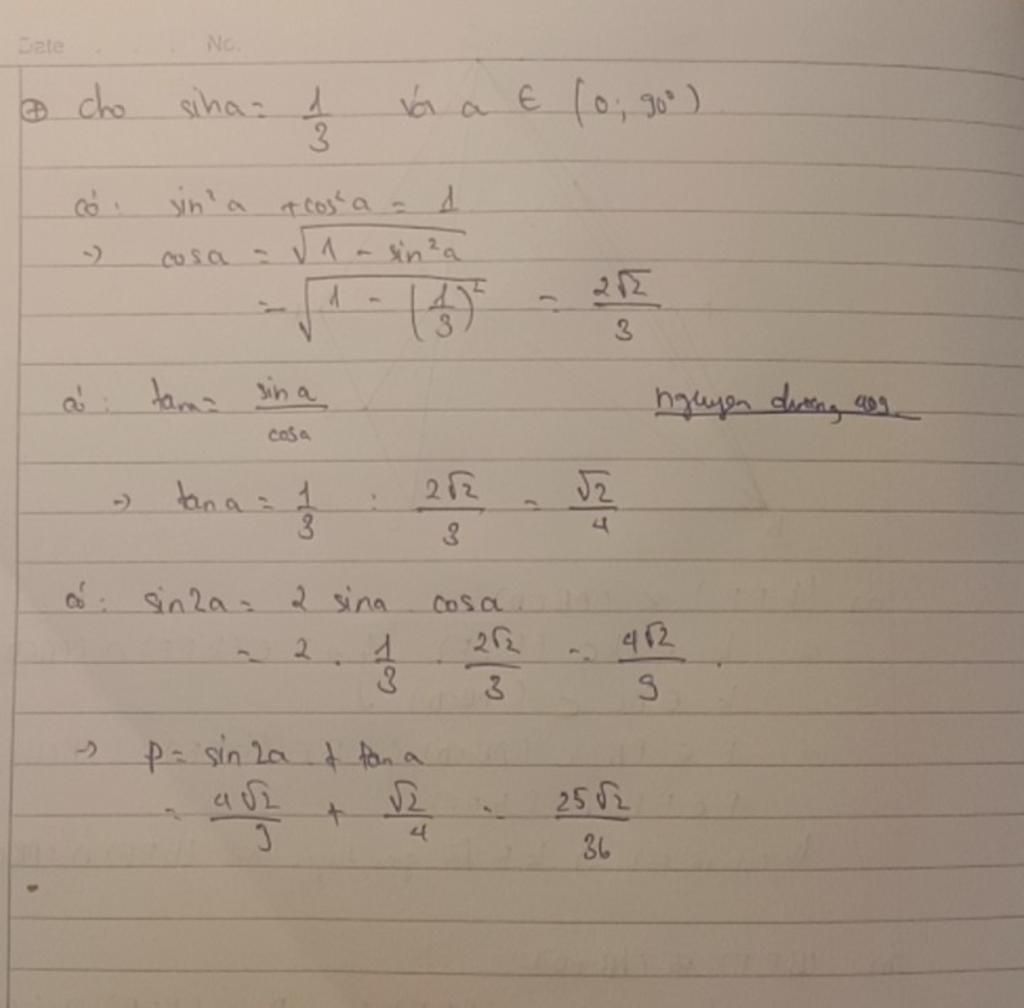 Date No.
⊕ Cho sina = 1/3 với a ∈ (0; 90°)
có: sin²a + cos²a = 1
→ cosa = √(1 - sin²a)
= √(1 - (1/3)²) = 2√2/3
có: tana = sina/cosa nguyen duong 409
→ tana = 1/3 : 2√2/3 = √2/4
có: sin2a = 2 sina cosa.
= 2 . 1/3 . 2√2/3 = 4√2/9 .
→ P = sin2a + tana
= 4√2/9 + √2/4 = 25√2/36